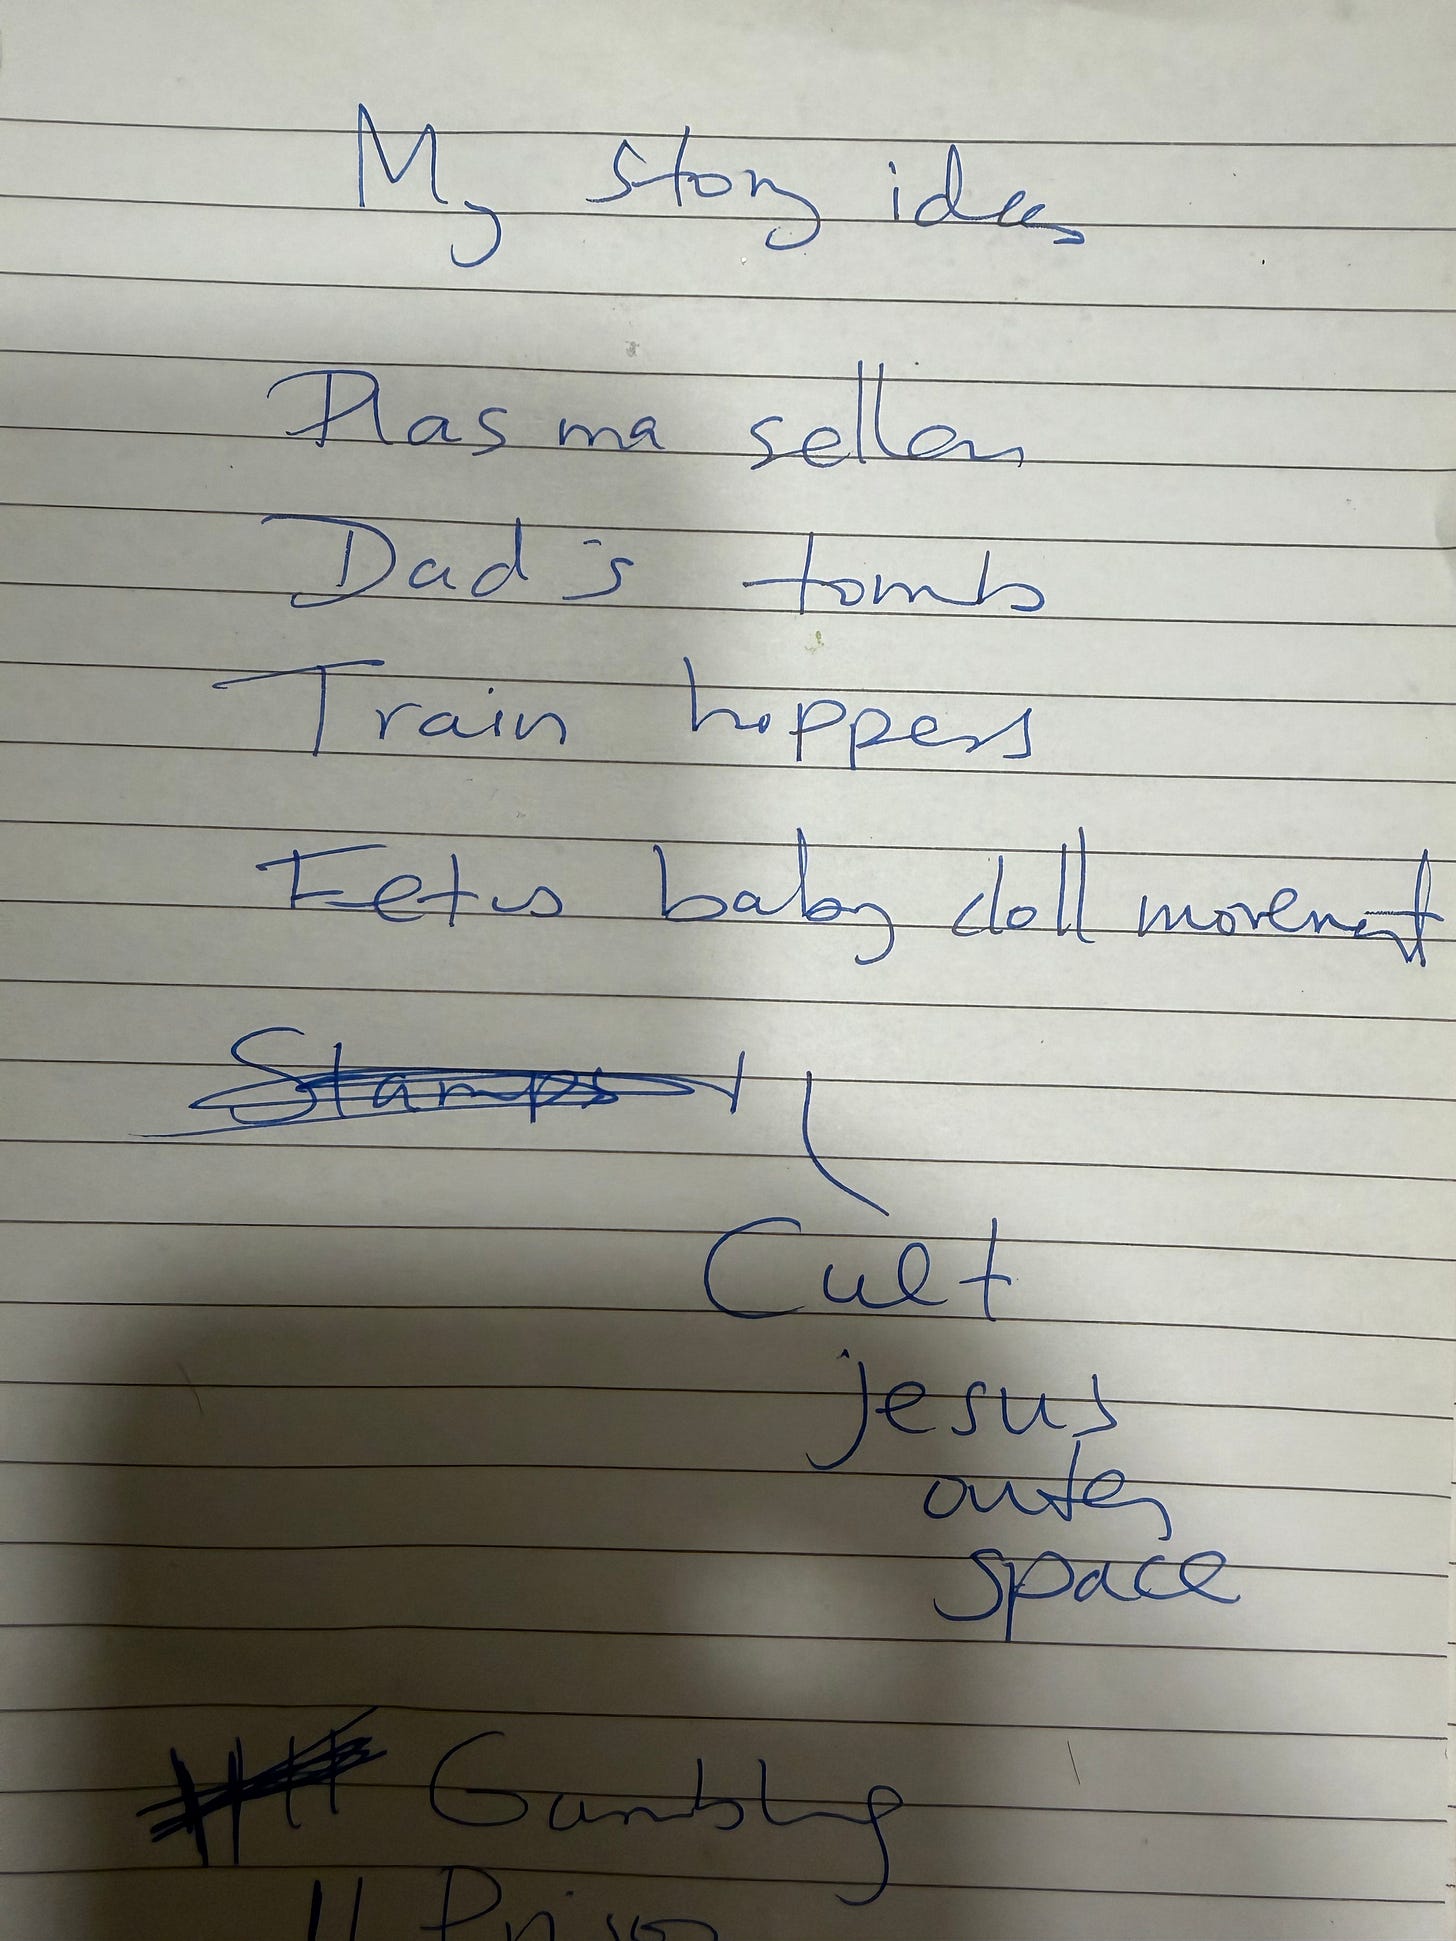 My story ideas
Plasma seller
Dad's tomb
Train hoppers
Fetus baby doll movement
Stamps
Cult
jesus
outer
space
Gambling